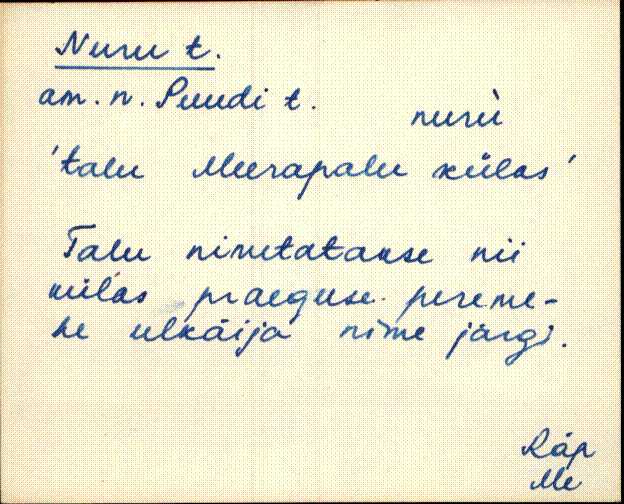 Nuru t.
am. n. Puudi t.
nurù
'talu Meerapalu külas'
Talu nimetatakse nii
külas praeguse pereme-
he ulkäija nime järgi.
Räp
Me